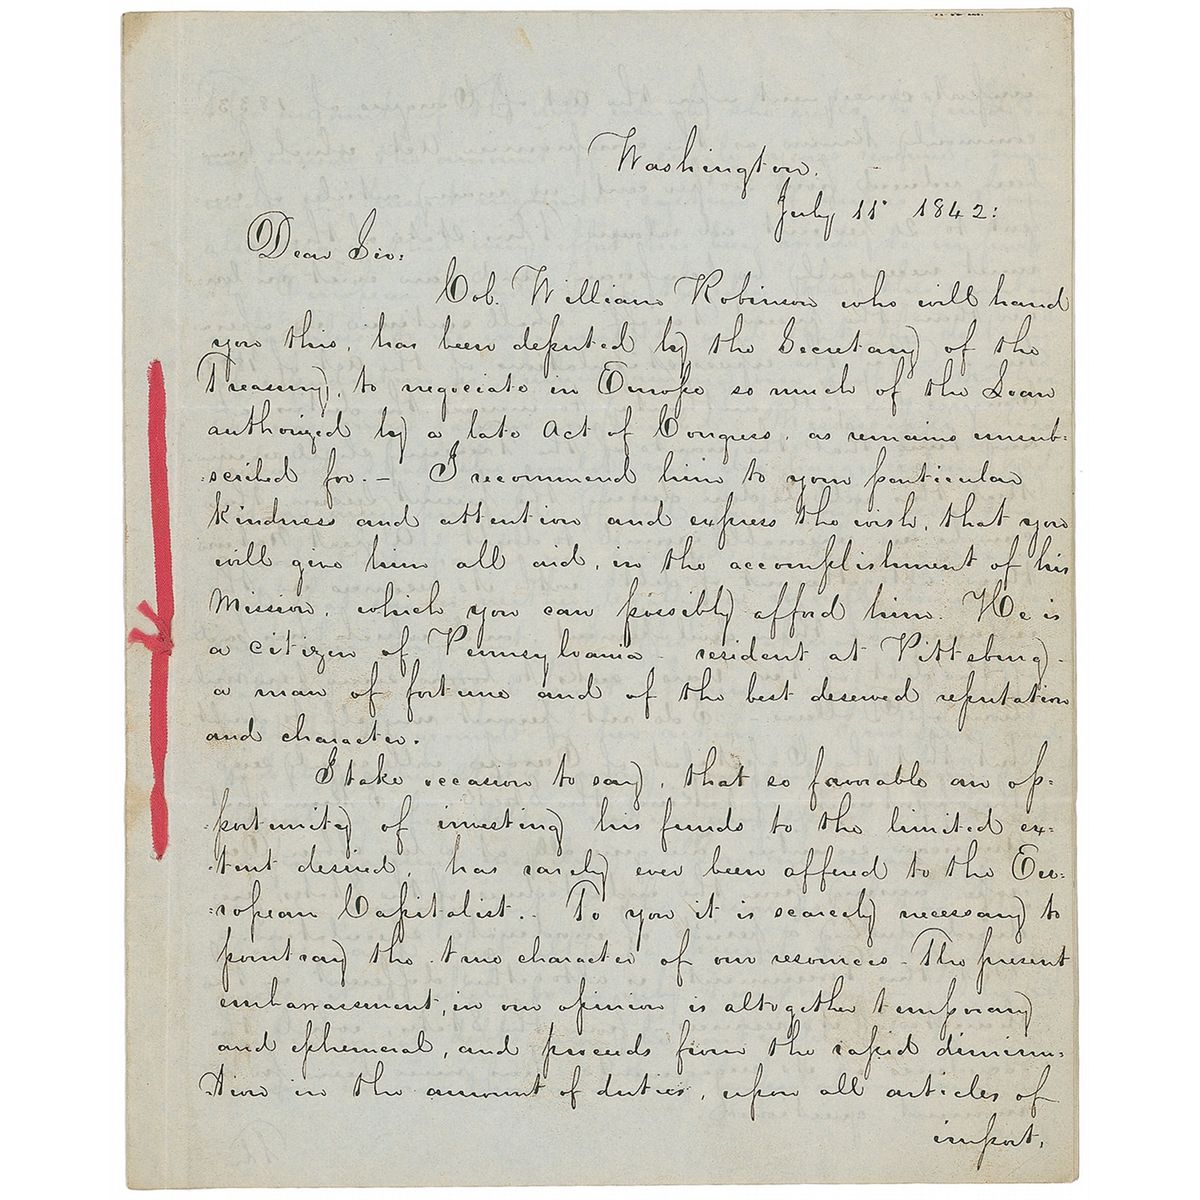 Washington.
July 11 1842:
Dear Sir:
Col. William Robinson who will hand
you this, has been deputed by the Secretary of the
Treasury, to negociate in Europe so much of the Loan
authorized by a late Act of Congress, as remains unsub-
:scribed for. - I recommend him to your particular
kindness and attention and express the wish, that you
will give him all aid, in the accomplishment of his
Mission, which you can possibly afford him. He is
a citizen of Pennsylvania - resident at Pittsburg -
a man of fortune and of the best deserved reputation
and character.
I take occasion to say, that so favorable an op-
:portunity of investing his funds to the limited ex-
:tent desired, has rarely ever been offered to the Eu-
:ropean Capitalist.. To you it is scarcely necessary to
pourtray the true character of our resources - The present
embarrassment, in our opinion is altogether temporary
and ephemeral, and proceeds from the rapid diminu-
:tion in the amount of duties, upon all articles of
import,